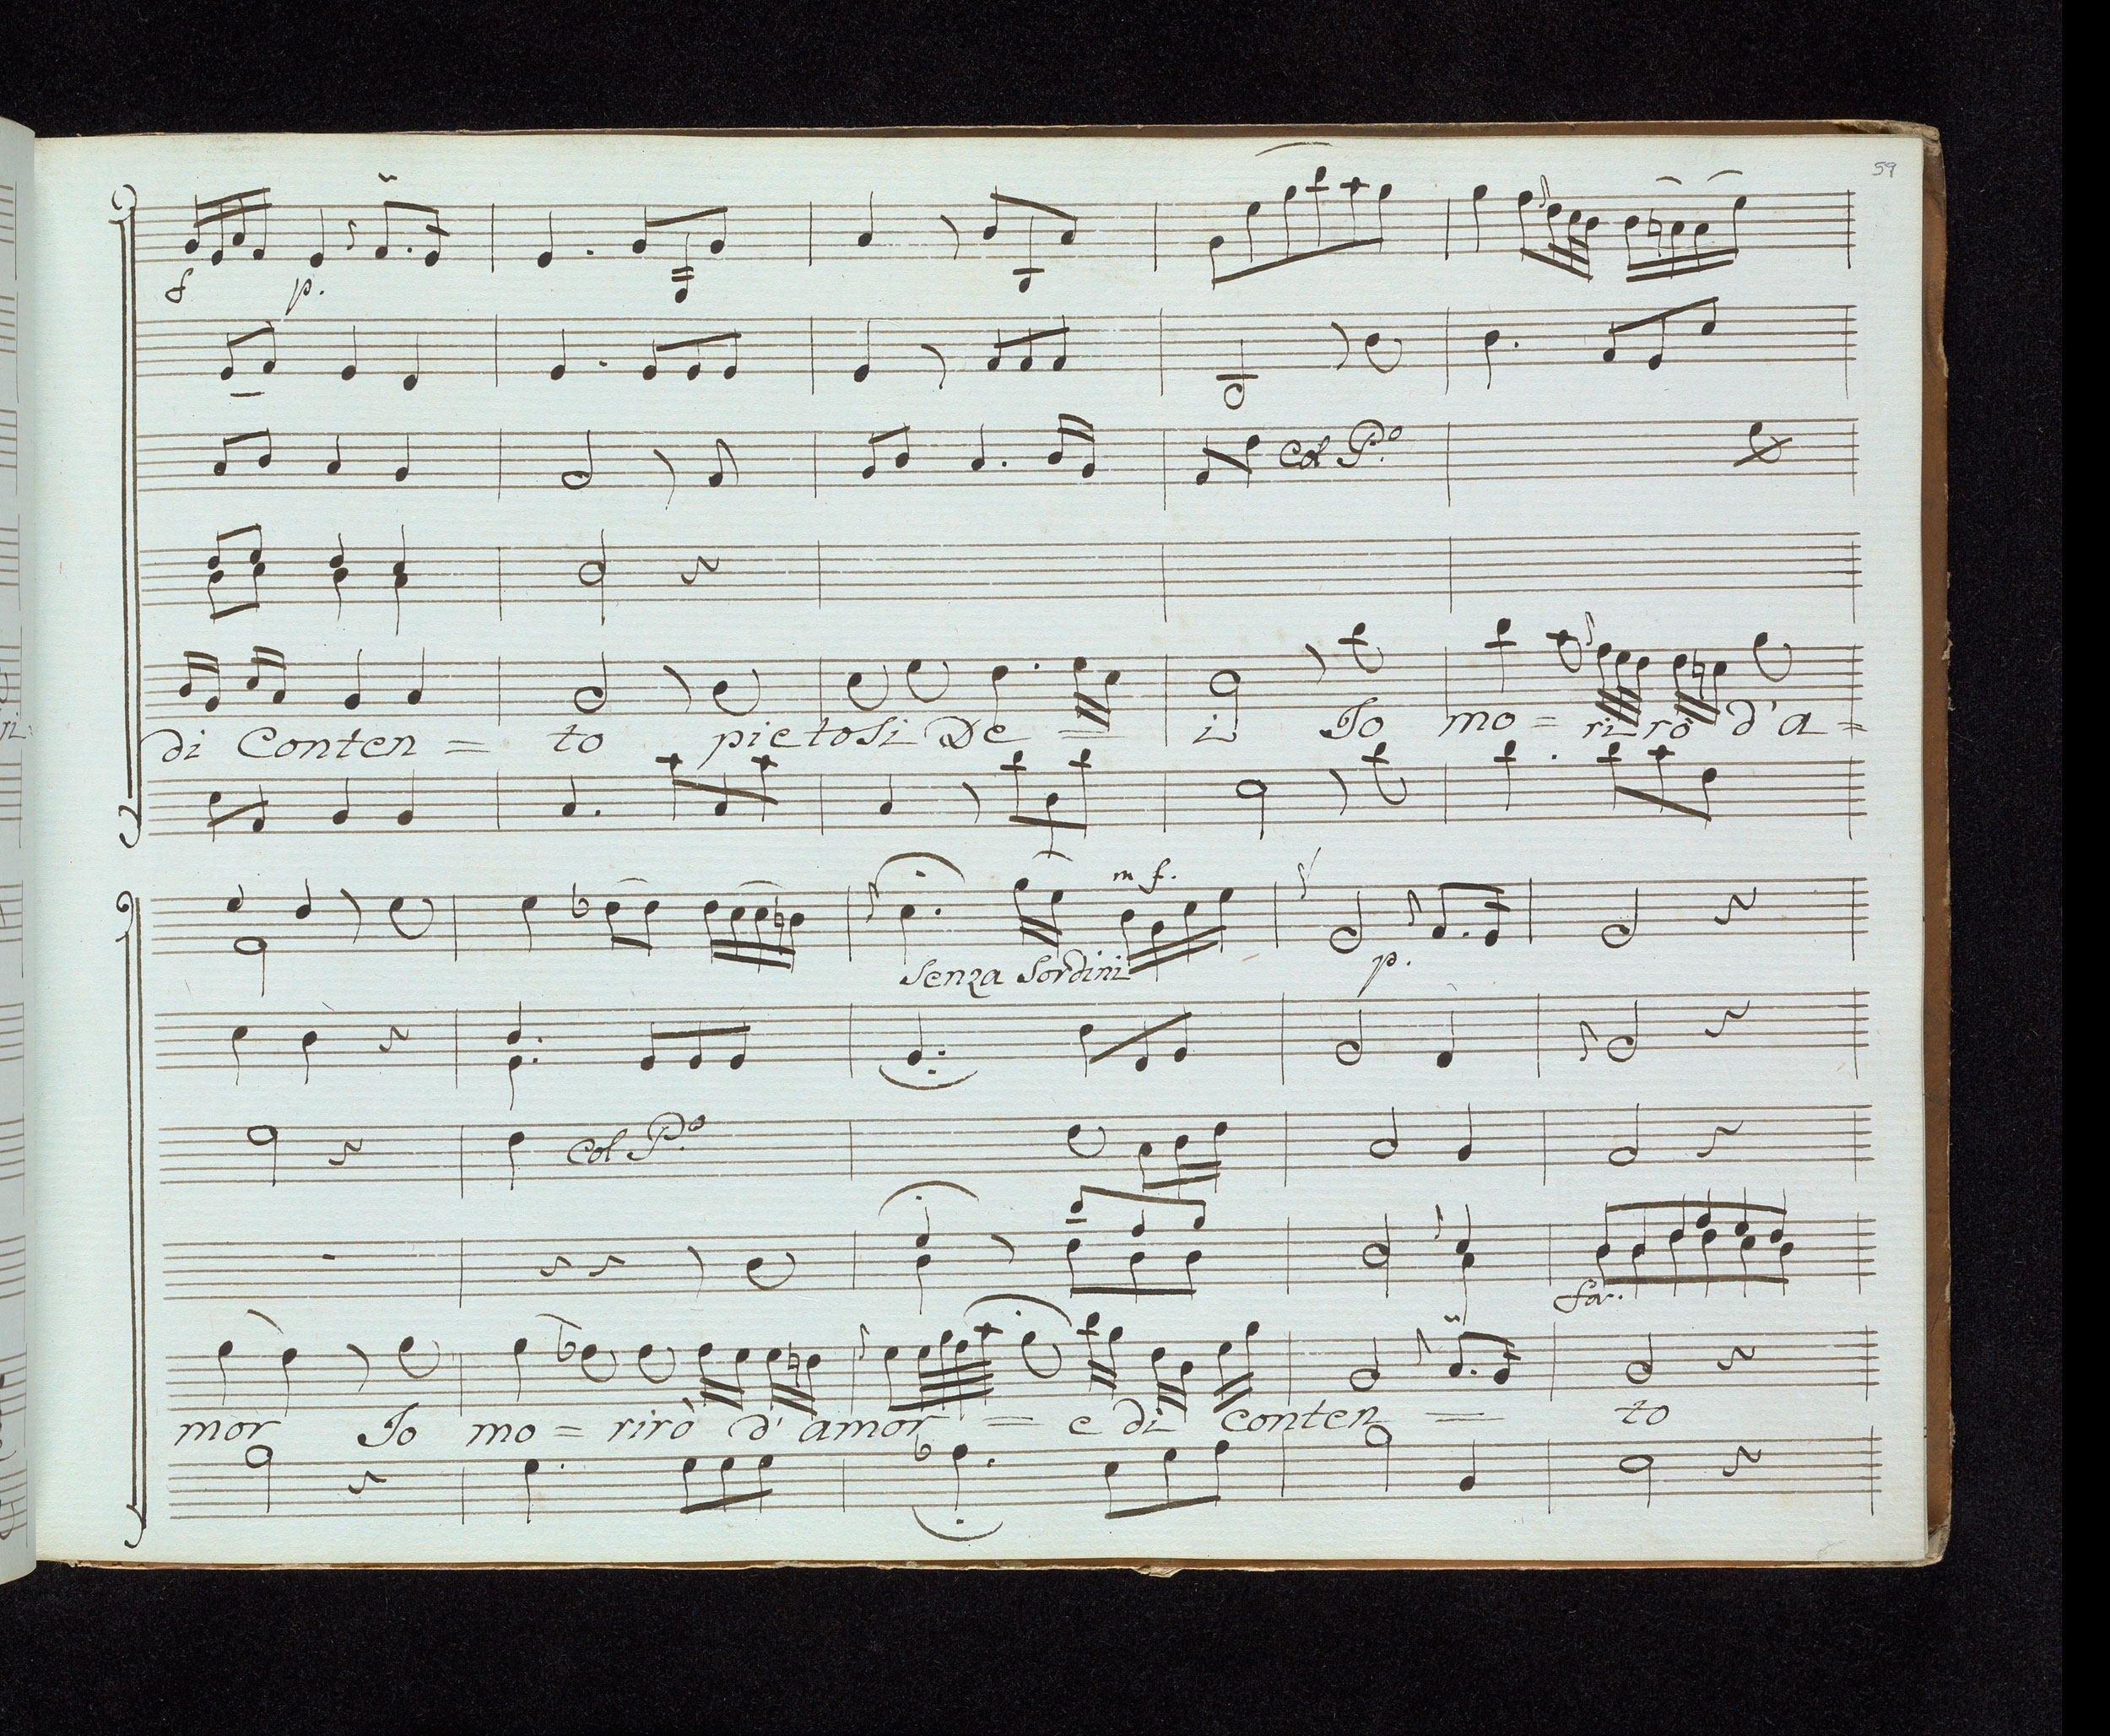 59
f p.
col P.o
di Conten = to pietosi De = i Io mo = ri rò d'a =
m f.
Senza Sordini p.
col P.o
for.
mor Io mo = rirò d'amor = e di conten = to